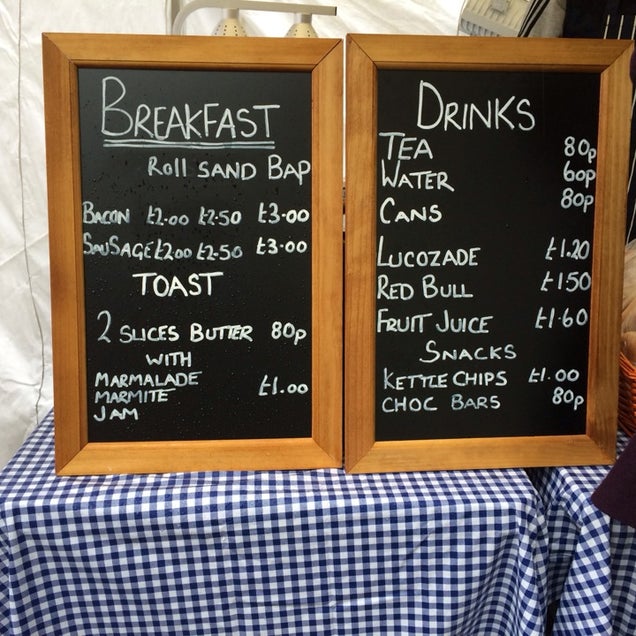 BREAKFAST
Roll SAND BAP
BACON £2.00 £2.50 £3.00
SAUSAGE £2.00 £2.50 £3.00
TOAST
2 SLICES BUTTER 80p
WITH
MARMALADE
MARMITE £1.00
JAM
DRINKS
TEA 80p
WATER 60p
CANS 80p
LUCOZADE £1.20
RED BULL £1.50
FRUIT JUICE £1.60
SNACKS
KETTLE CHIPS £1.00
CHOC BARS 80p